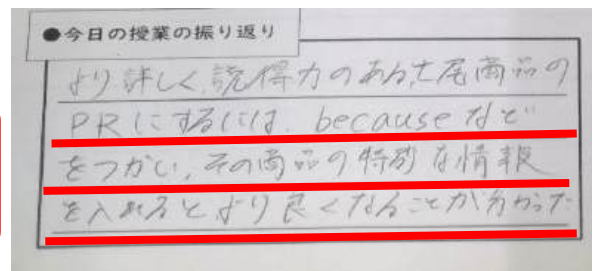 ●今日の授業の振り返り
より詳しく、説得力のある七尾商品の
PRにするには、becauseなど
をつかい、その商品の特別な情報
を入れるとより良くなることが分かった